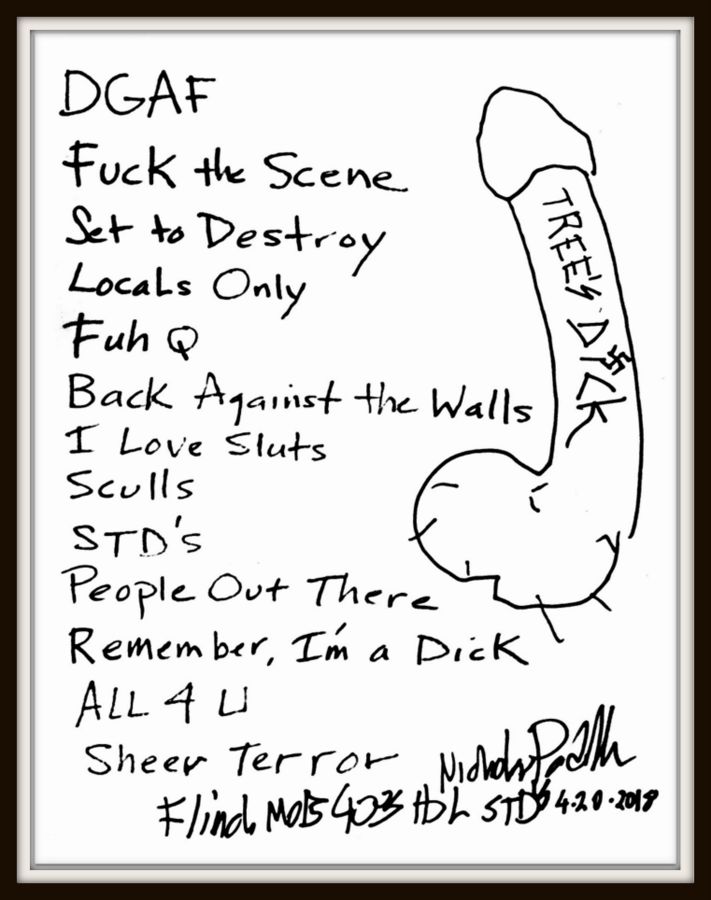 DGAF
Fuck the Scene
Set to Destroy
Locals Only
Fuh Q
Back Against the Walls
I Love Sluts
Sculls
STD's
People Out There
Remember, I'm a Dick
ALL 4 U
Sheer Terror
TREE'S DICK
STD's 4.20.2018